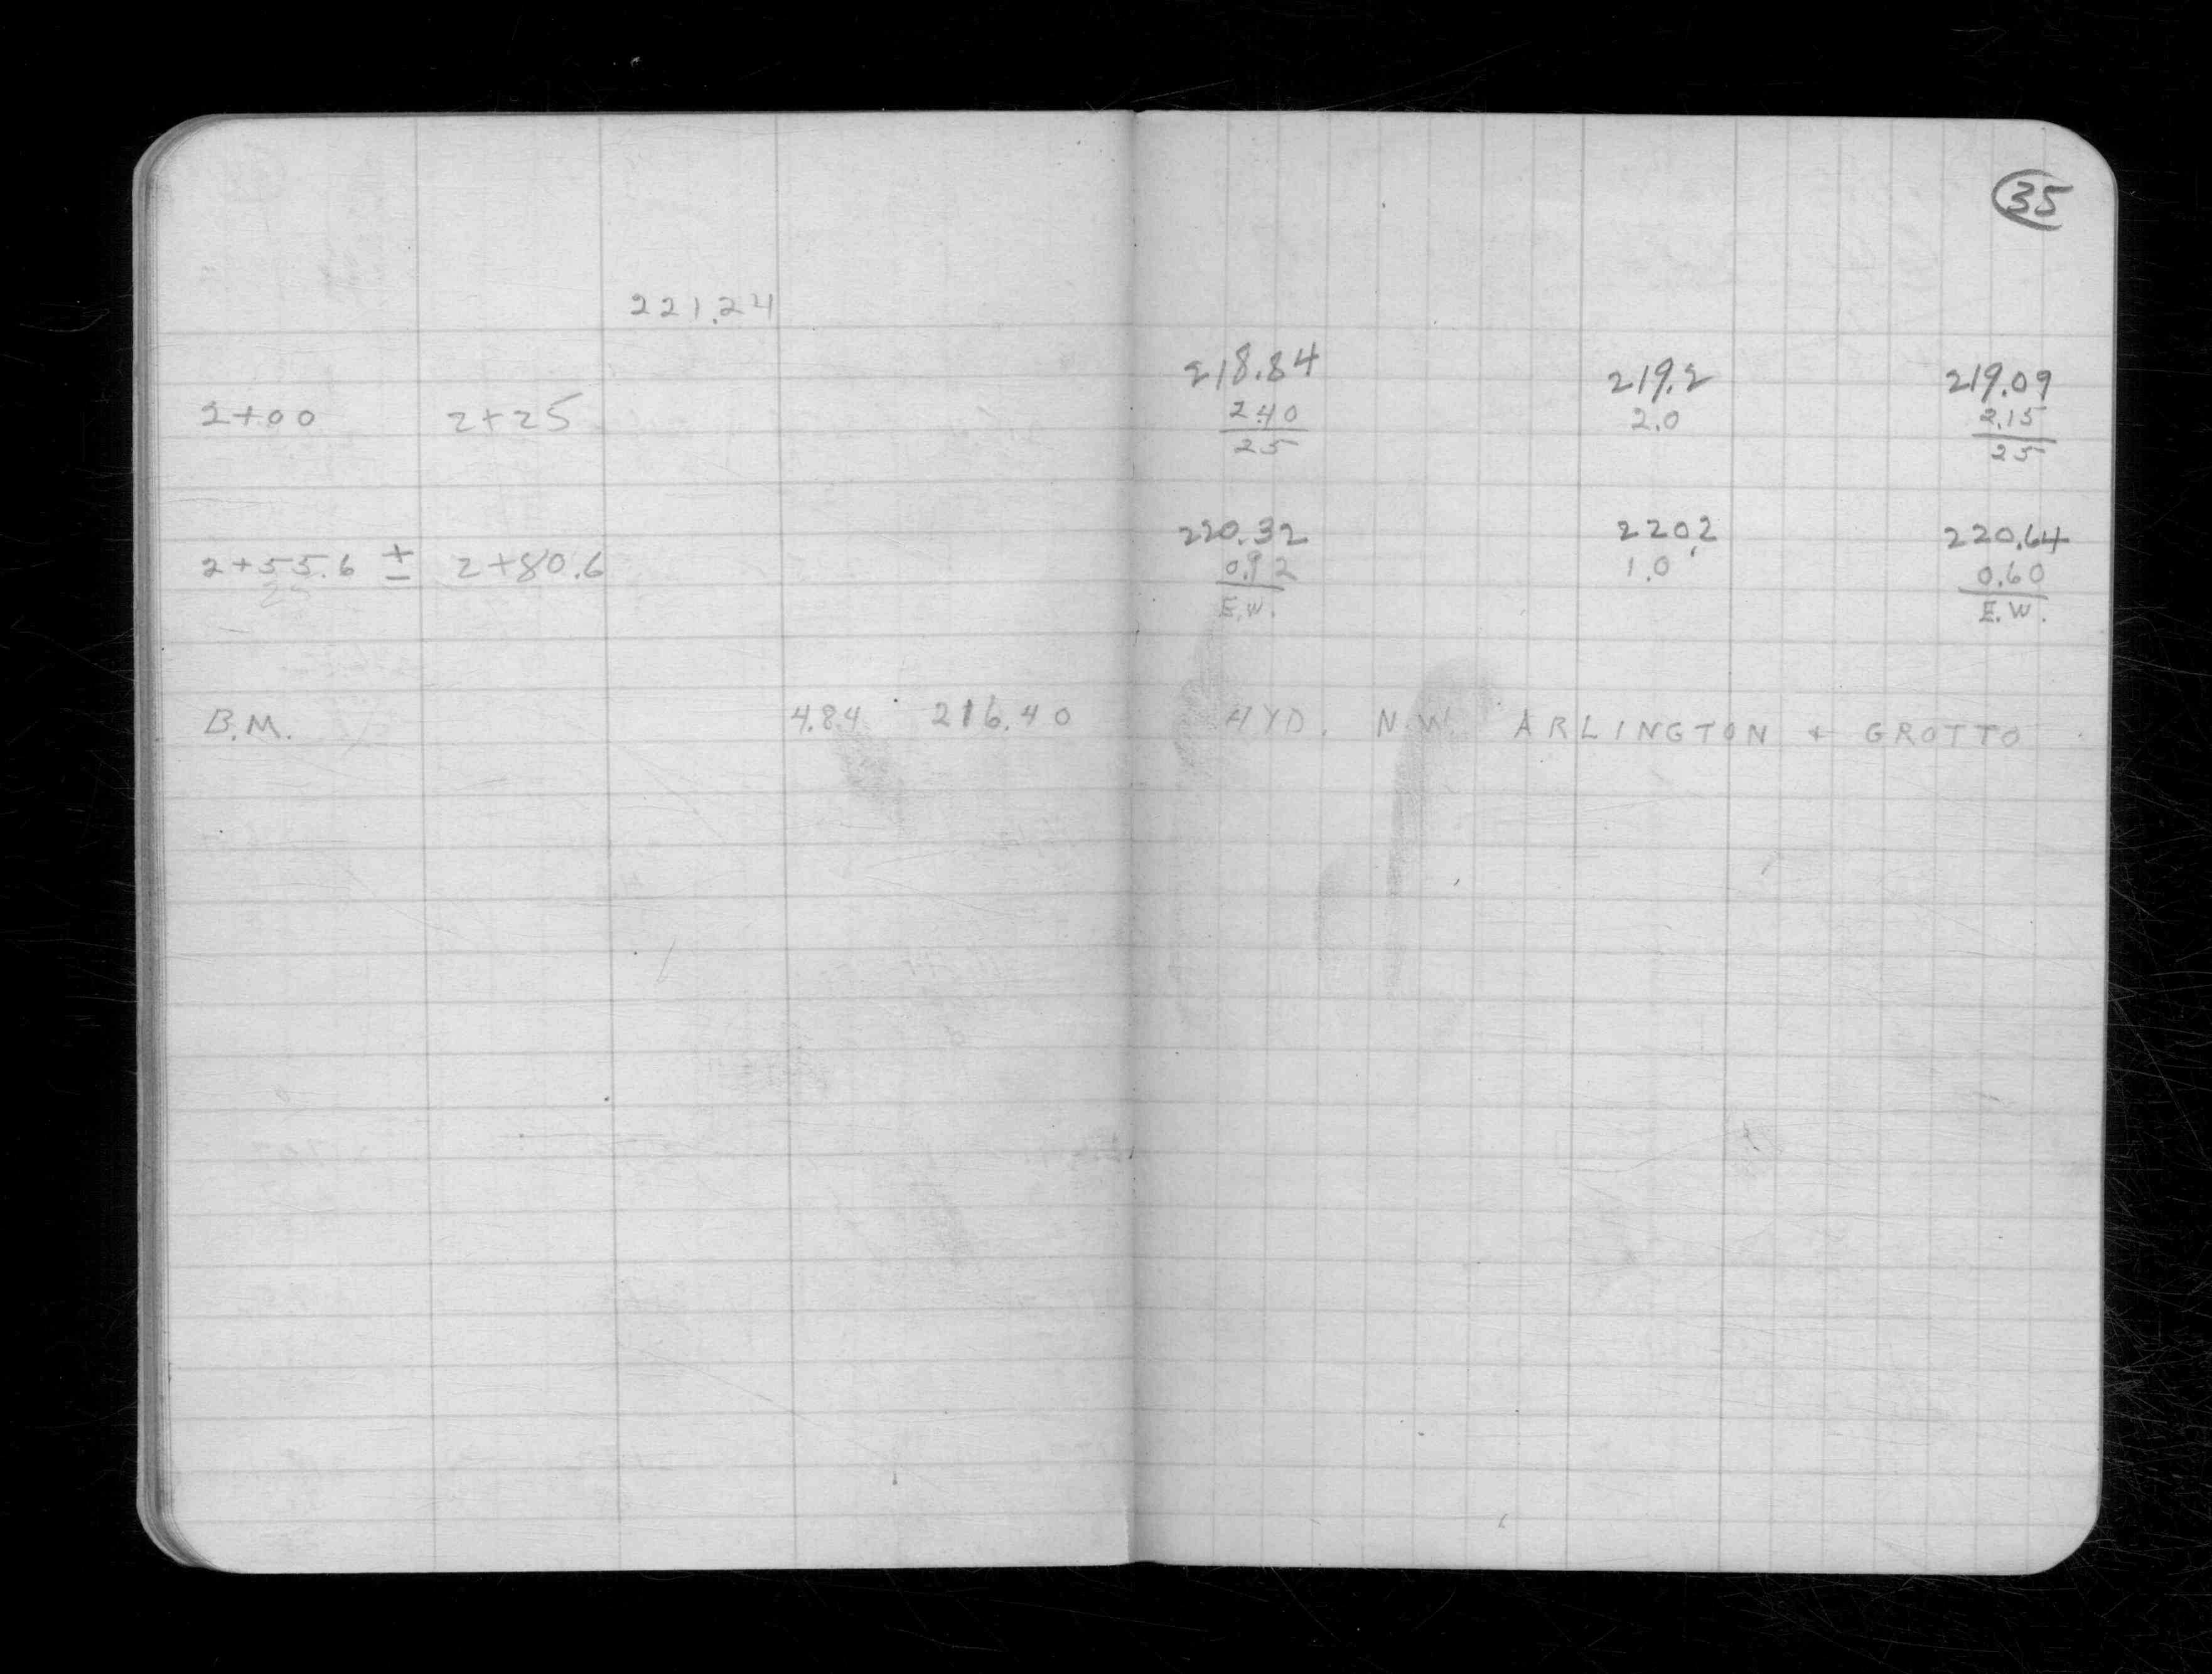 35
221.24
218.84 219.2 219.09
2+00 2+25 2.40 2.0 2.15
25 25
220.32 220.2 220.64
2+55.6 ± 2+80.6 0.92 1.0 0.60
E.W. E.W.
B.M. 4.84 216.40 HYD. N.W. ARLINGTON + GROTTO